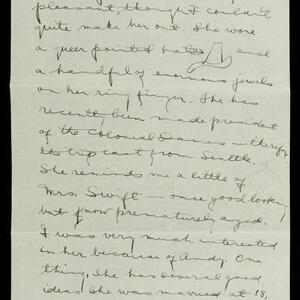 pleasant, though I couldn't
quite make her out. She wore
a queer pointed hat and
a handful of enormous jewels
on her ring finger. She has
recently been made president
of the Colonial Dames — therefore
the trip east from Seattle.
She reminds me a little of
Mrs. Swift — once good looking
but now prematurely aged.
I was very much interested
in her because of Andy. One
thing, she has several good
ideas. She was married at 18,